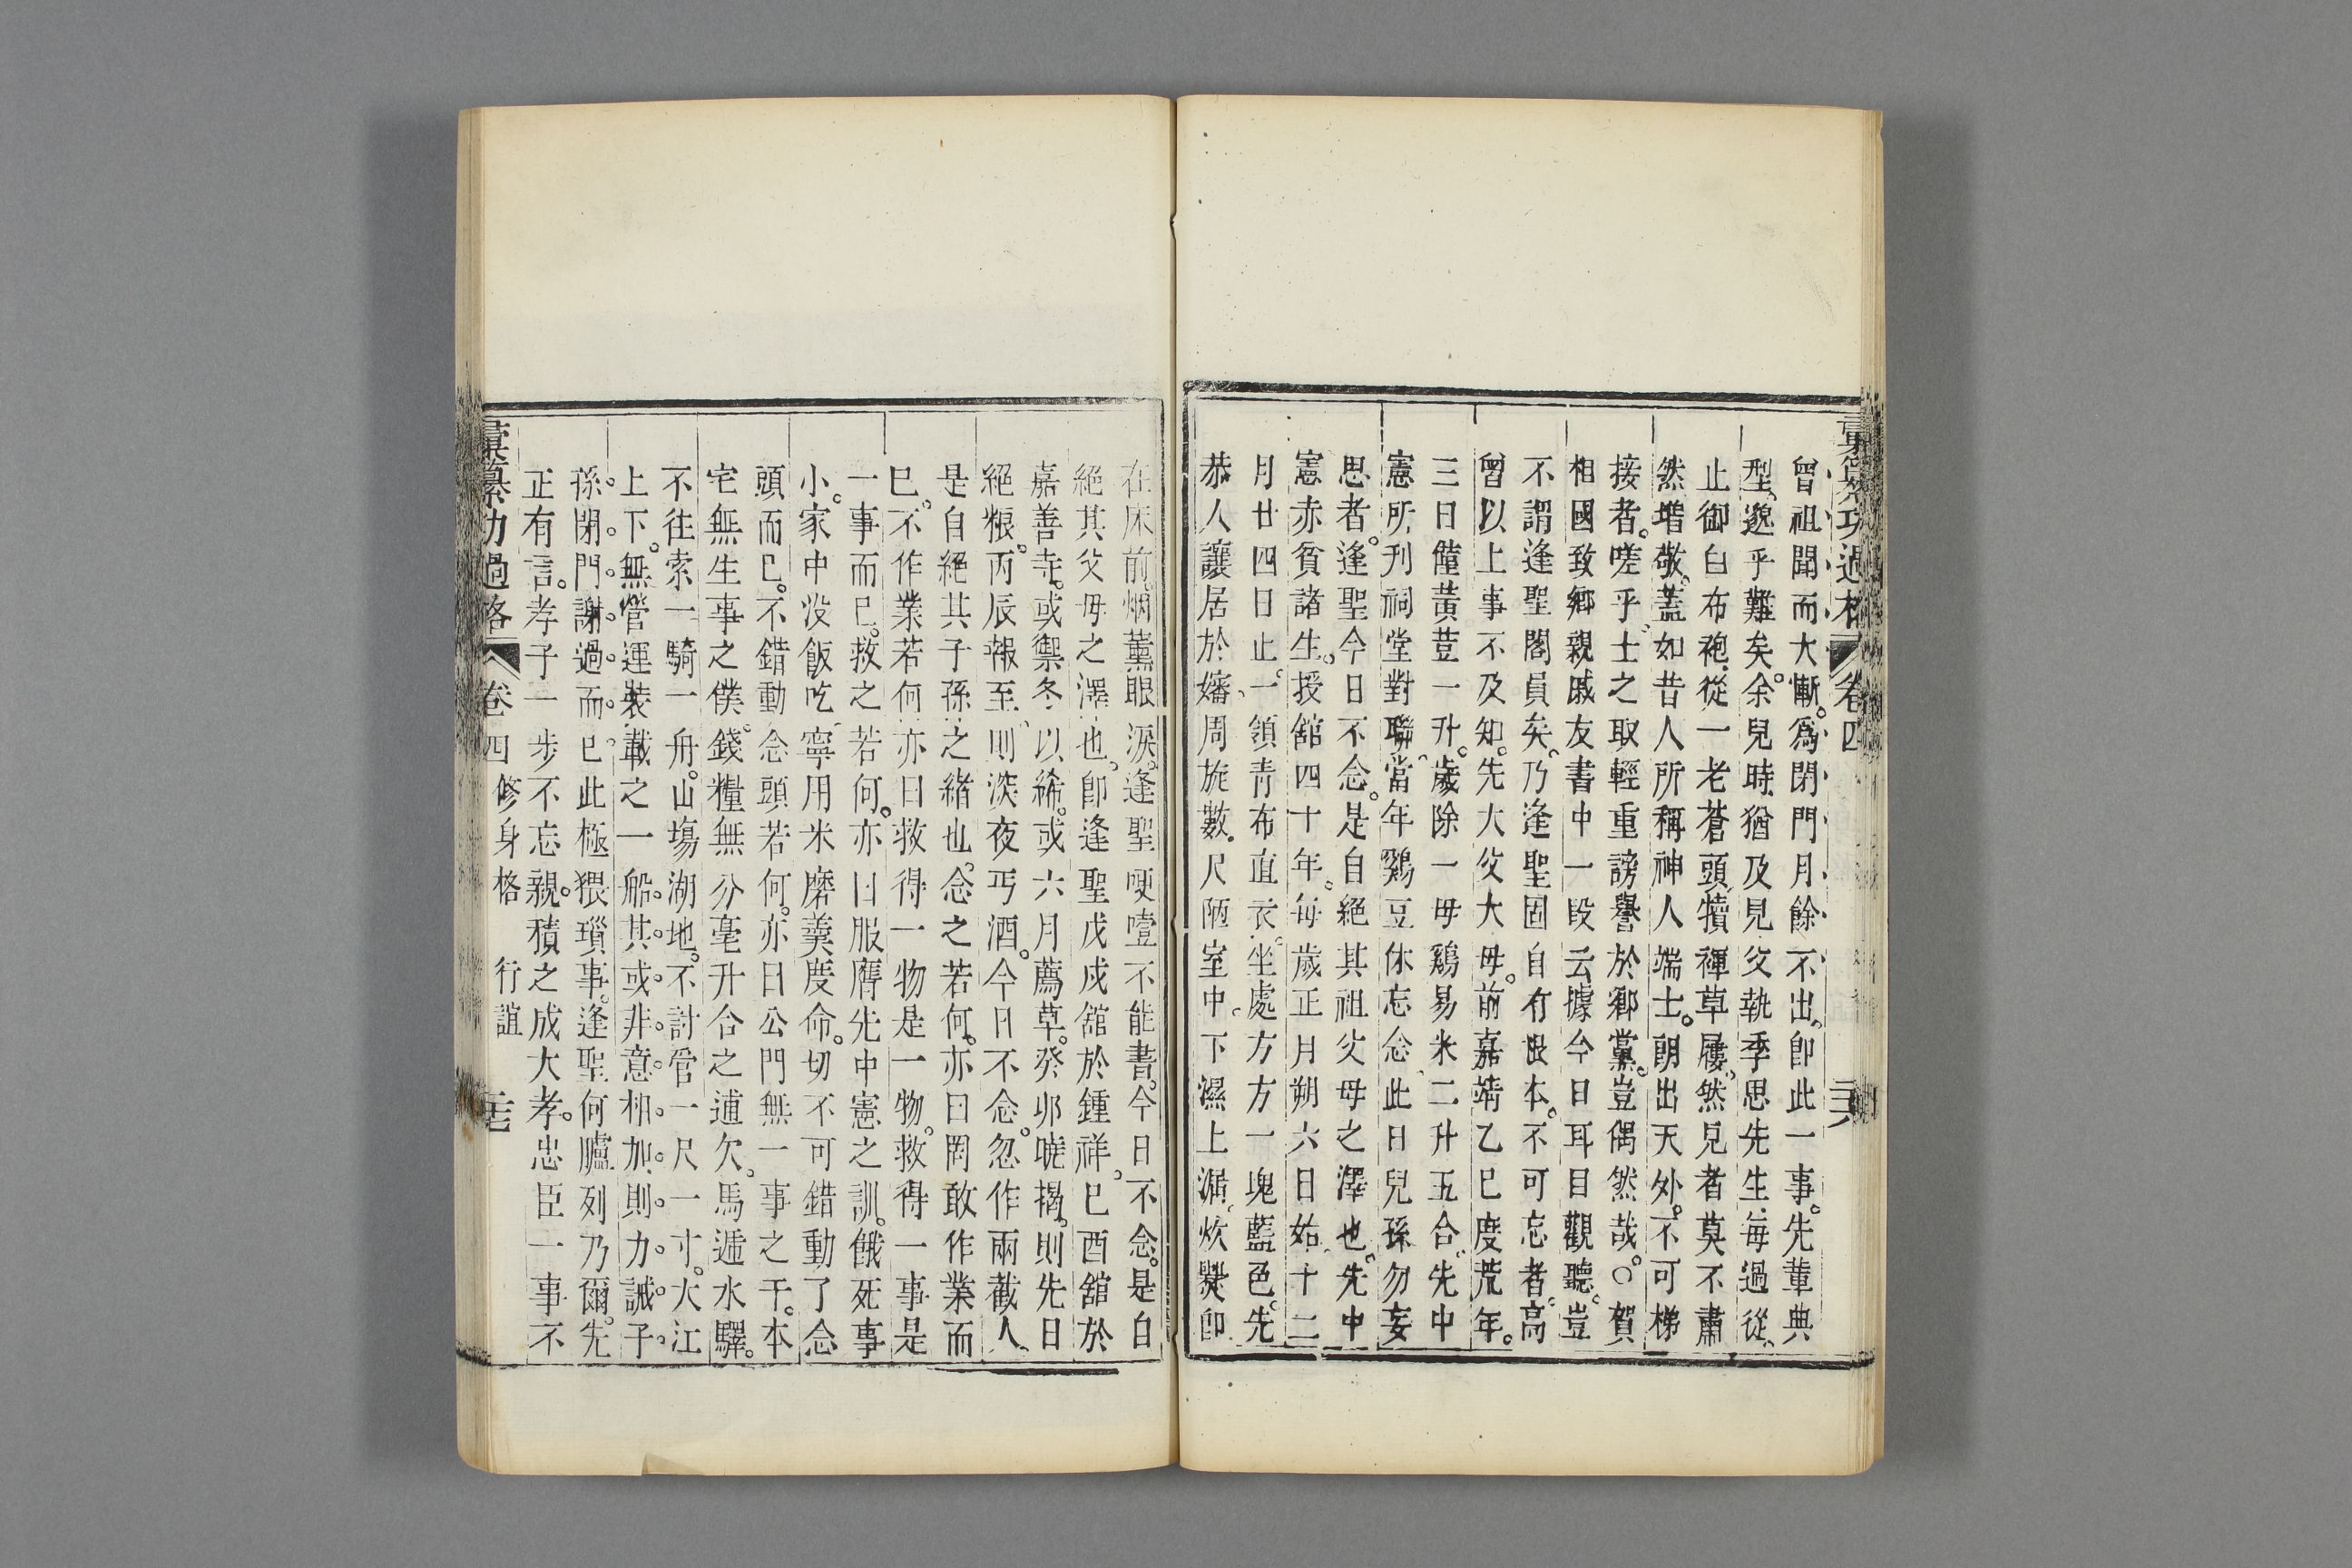 彙纂功過格 卷四 二十六
曾祖聞而大慚爲閉門月餘不出卽此一事先輩典
型邈乎難矣余兒時猶及見父執季思先生每過從
止御白布袍從一老蒼頭犢褌草屨然見者莫不肅
然增敬蓋如昔人所稱神人端士朗出天外不可梯
接者嗟乎士之取輕重謗譽於鄉黨豈偶然哉○賀
相國致鄉親戚友書中一段云據今日耳目觀聽豈
不謂逢聖閣員矣乃逢聖固自有根本不可忘者高
曾以上事不及知先大父大母前嘉靖乙巳度荒年
三日饉黃荳一升歲除一母鷄易米二升五合先中
憲所刋祠堂對聯當年鷄豆休忘念此日兒孫勿妄
思者逢聖今日不念是自絕其祖父母之澤也先中
憲赤貧諸生授舘四十年每歲正月朔六日始十二
月廿四日止一領靑布直衣坐處方方一塊藍色先
恭人讓居於嬸周旋數尺陋室中下濕上漏炊㸑卽
在床前烟薰眼淚逢聖哽噎不能書今日不念是自
絕其父母之澤也卽逢聖戊戍舘於鍾祥巳酉舘於
嘉善寺或禦冬以絺或六月薦草癸夘曉揭則先日
絕粮丙辰報至則深夜丐酒今日不念忽作兩截人
是自絕其子孫之緖也念之若何亦曰罔敢作業而
巳不作業若何亦曰救得一物是一物救得一事是
一事而巳救之若何亦曰服膺先中憲之訓餓死事
小家中没飯吃寧用米磨羹度命切不可錯動了念
頭而巳不錯動念頭若何亦曰公門無一事之干本
宅無生事之僕錢糧無分毫升合之逋欠馬遞水驛
不往索一騎一舟山塲湖地不討管一尺一寸大江
上下無營運裝載之一船其或非意相加則力誡子
孫閉門謝過而巳此極猥瑣事逢聖何臚列乃爾先
正有言孝子一步不忘親積之成大孝忠臣一事不
彙纂功過格 卷四 修身格 行誼 二十七